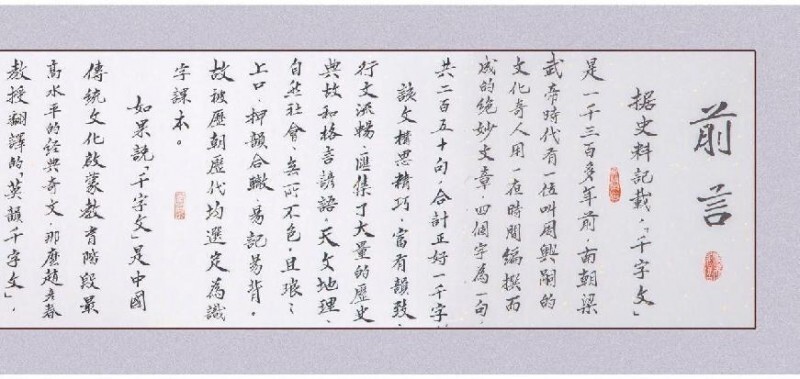 前言
據史料記載，「千字文」
是一千三百多年前，南朝梁
武帝時代有一位叫周興嗣的
文化奇人用一夜時間編撰而
成的絕妙文章，四個字為一句，
共二百五十句，合計正好一千字
該文構思精巧，富有韻致，
行文流暢，匯集了大量的歷史
典故和格言諺語，天文地理，
自然社會，無所不包，且琅琅
上口，押韻合轍，易記易背。
故被歷朝歷代均選定為識
字課本。
如果說「千字文」是中國
傳統文化啟蒙教育階段最
高水平的經典奇文，那麼趙彥春
教授翻譯的「英韻千字文」，